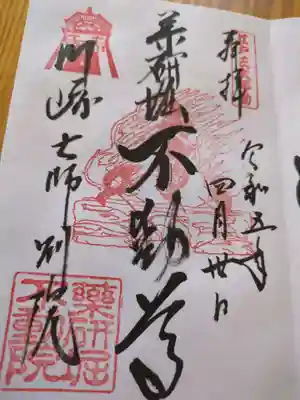 奉拝
令和五年
四月卅日
薬研堀
不動尊
川崎大師別院
薬研堀
不動院